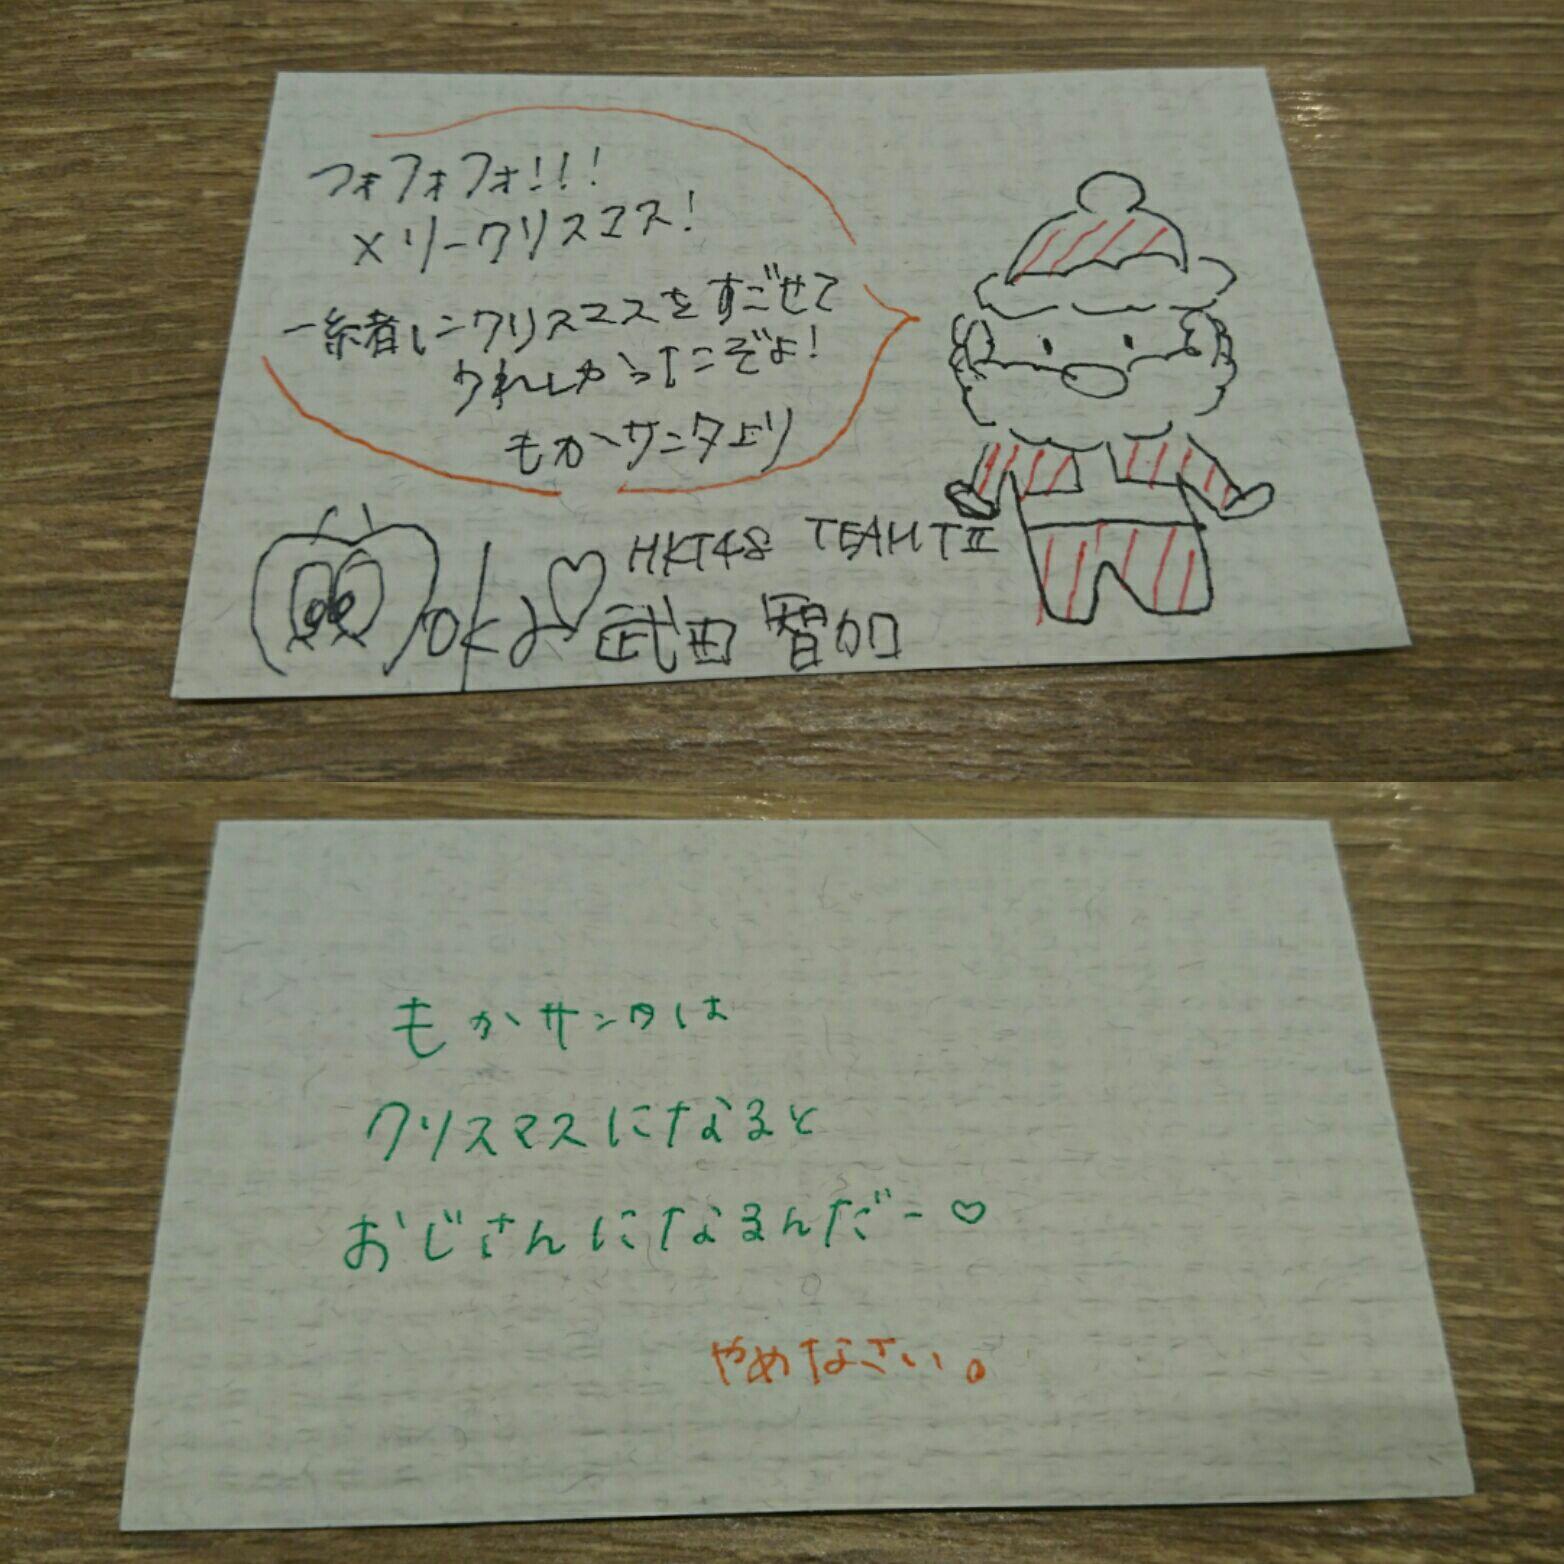 フォフォフォ!!!
メリークリスマス!
一緒にクリスマスをすごせて
うれしかったぞよ!
もかサンタより
HKT48 TEAM TⅡ
Moka♡ 武田智加
もかサンタは
クリスマスになると
おじさんになるんだー♡
やめなさい。